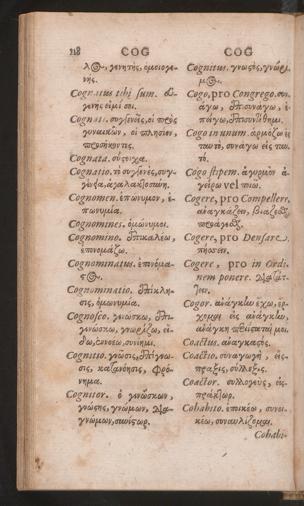 118 COG COG
λος, γενητὴς, ὁμοιογε-
νής.
Cognatus tibi sum.
γενής εἰμί σοι.
Cognati. συγγενεῖς, οἱ πρὸς
γυναικῶν, οἱ πλησίον,
προσήκοντες.
Cognata. σύζυγα.
Cognatio. τὸ συγγενὲς, συγ-
γένεια,
Cognomen. ἐπώνυμον, ἐ-
πωνυμία.
Cognomines. ὁμώνυμοι.
Cognomino. ἐπικαλέω,
ἐπονομάζω.
Cognominatus. ἐπονόμα-
τος
Cognominatio. ἐπίκλη-
σις, ὁμωνυμία.
Cognosco. γινώσκω, ἐπι-
γινώσκω, γνωρίζω, εἴ-
δω, συνοέω, συνίημι.
Cognitio. γνῶσις, ἐπίγνω-
σις, κατανόησις, φρό-
νημα.
Cognitor. ὁ γινώσκων,
γνώστης, γνώμων, δια-
γνώμων, συνίστωρ.
Cognitus. γνωστὸς, γνώρι-
μος.
Cogo, pro Congrego. συν-
άγω, ἐπισυνάγω, ἐ-
πάγω, ἐπισυντίθημι.
Cogo in unum. ἁρμόζω εἰς
ταυτὸ, συνάγω εἰς ταυ-
τό.
Cogo stipem. ἀγυρμὸν ἀ-
γείρω vel ποιῶ.
Cogere, pro Compellere.
ἀναγκάζειν, βιάζεσθαι,
Cogere, pro Densare.
πήσσειν.
Cogere, pro in Ordi-
nem ponere. διατάτ-
τειν.
Cogor. ἀνάγκην ἔχω, ἔρ-
χομαι εἰς ἀνάγκην,
ἀνάγκη πρόσεστί μοι.
Coactus. ἀναγκαστός.
Coactio. συναγωγὴ, εἴς-
πραξις, σύλλεξις.
Coactor. συλλογεὺς, εἰς-
πράκτωρ.
Cohabito. ἐποικέω, συνοι-
κέω, συναυλίζομαι.
Cohabi-